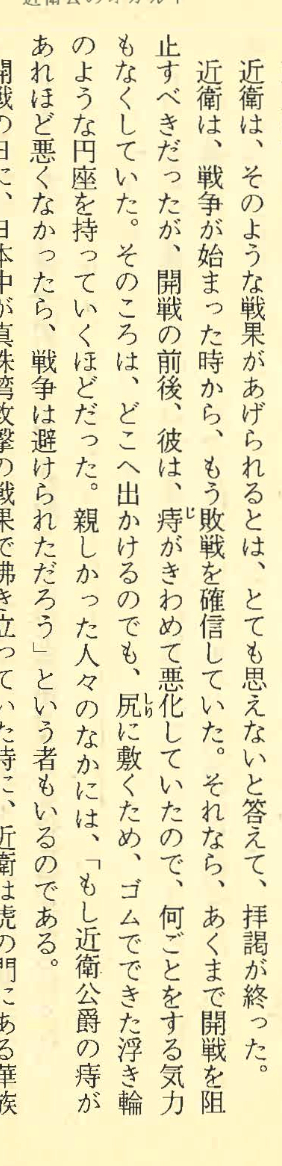 近衛は、そのような戦果があげられるとは、とても思えないと答えて、拝謁が終った。
近衛は、戦争が始まった時から、もう敗戦を確信していた。それなら、あくまで開戦を阻
止すべきだったが、開戦の前後、彼は、痔がきわめて悪化していたので、何ごとをする気力
もなくしていた。そのころは、どこへ出かけるのでも、尻に敷くため、ゴムでできた浮き輪
のような円座を持っていくほどだった。親しかった人々のなかには、「もし近衛公爵の痔が
あれほど悪くなかったら、戦争は避けられただろう」という者もいるのである。
開戦の日に、日本中が真珠湾攻撃の戦果で沸き立っていた時に、近衛は虎の門にある華族